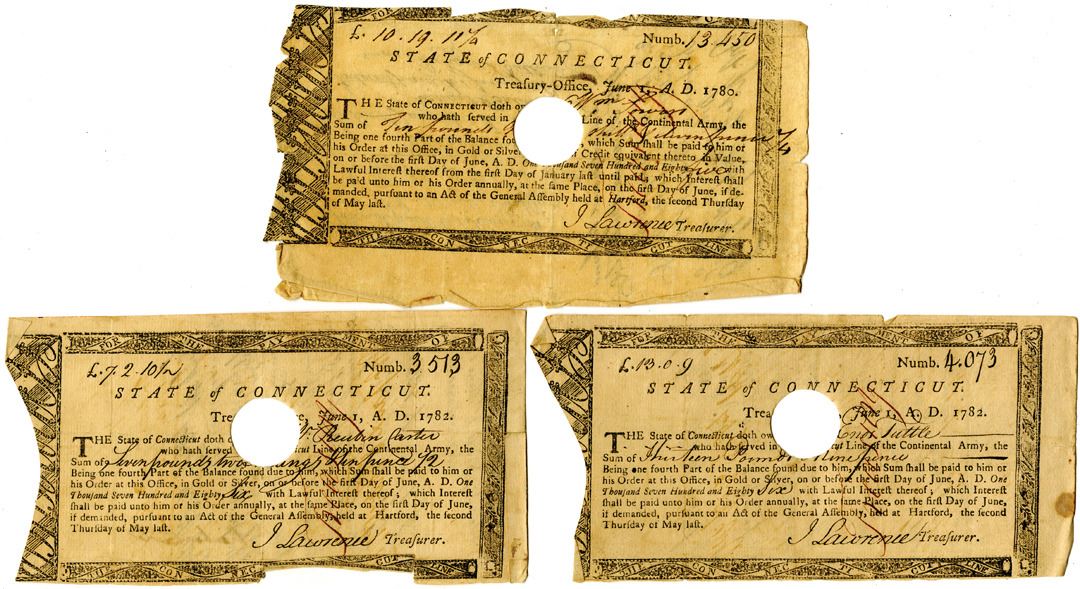 FOR
£. 10. 19. 11½
Numb. 13.450
STATE of CONNECTICUT.
Treasury-Office, June 1, A. D. 1780.
THE State of CONNECTICUT doth ow
who hath served in Line of the Continental Army, the
Sum of Ten pounds
Being one fourth Part of the Balance fou , which Sum shall be paid to him or
his Order at this Office, in Gold or Silver Credit equivalent thereto in Value,
on or before the first Day of June, A. D. One Thousand Seven Hundred and Eighty five with
Lawful Interest thereof from the first Day of January last until paid; which Interest shall
be paid unto him or his Order annually, at the same Place, on the first Day of June, if de-
manded, pursuant to an Act of the General Assembly held at Hartford, the second Thursday
of May last.
J Lawrence Treasurer.
THE CON NEC TI CUT LINE
FOR THE PAY MENT OF
£. 7. 2. 10½
Numb. 3513
STATE of CONNECTICUT.
Tre June 1, A. D. 1782.
THE State of Connecticut doth o Reubin Carter
who hath serv cut Line of the Continental Army, the
Sum of Seven pounds two
Being one fourth Part of the Balance found due to him, which Sum shall be paid to him or
his Order at this Office, in Gold or Silver, on or before the first Day of June, A. D. One
Thousand Seven Hundred and Eighty Six with Lawful Interest thereof; which Interest
shall be paid unto him or his Order annually, at the same Place, on the first Day of June,
if demanded, pursuant to an Act of the General Assembly, held at Hartford, the second
Thursday of May last.
J Lawrence Treasurer.
THE CON NEC CUT
FOR THE PAY MENT OF
£. 13. 0. 9
Numb. 4.073
STATE of CONNECTICUT.
Trea June 1, A. D. 1782.
THE State of Connecticut doth ow Tuttle
who hath served in cut Line of the Continental Army, the
Sum of Thirteen Pounds Nine pence
Being one fourth Part of the Balance found due to him, which Sum shall be paid to him or
his Order at this Office, in Gold or Silver, on or before the first Day of June, A. D. One
Thousand Seven Hundred and Eighty Six with Lawful Interest thereof; which Interest
shall be paid unto him or his Order annually, at the same Place, on the first Day of June,
if demanded, pursuant to an Act of the General Assembly, held at Hartford, the second
Thursday of May last.
J Lawrence Treasurer.
THE CON NEC TI CUT